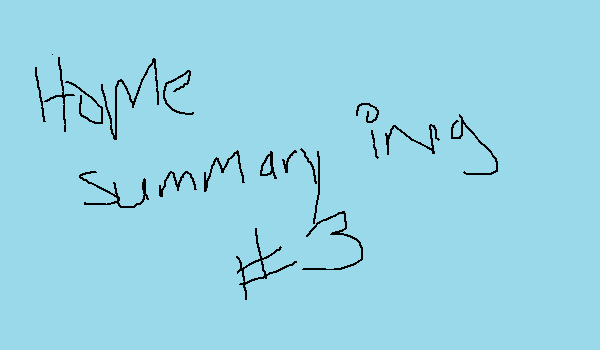 Home
summary img
#3